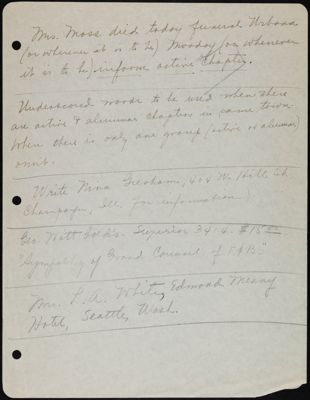 Mrs. Moss died today funeral Urbana
(or wherever it is to be) Monday (or whenever
it is to be) inform active chapter.
Underscored words to be used when there
are active & alumnae chapters in same town.
When there is only one group (active or alumnae)
omit.
Write Nina Gresham, 404 W. Hill St.
Champaign, Ill. for information
Geo. Witt Gold's Superior 3414. $15.00
"Sympathy of Grand Council of"
Mrs. L. A. White, Edmond Meany
Hotel, Seattle, Wash.